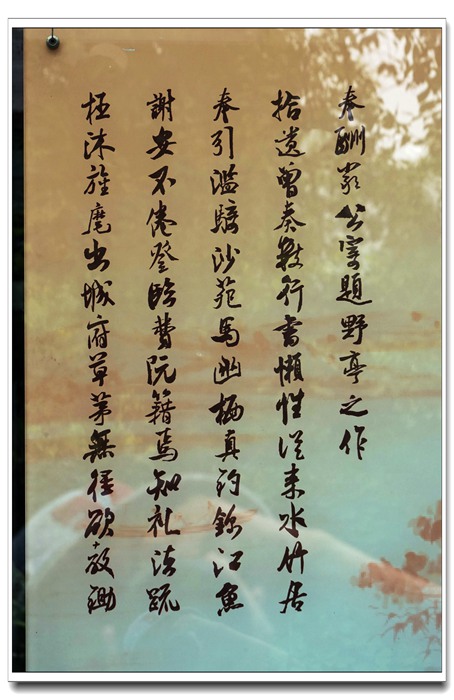 奉酬嚴公寄題野亭之作
拾遺曾奏數行書懶性從來水竹居
奉引濫騎沙苑馬幽栖真釣錦江魚
謝安不倦登臨費阮籍焉知礼法疏
枉沐旌麾出城府草茅無徑欲教鋤